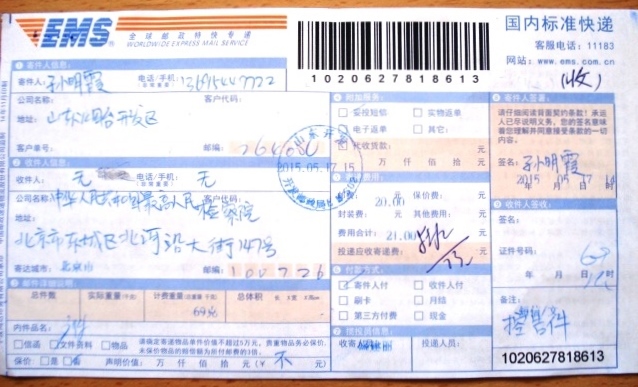 EMS 全球邮政特快专递
WORLDWIDE EXPRESS MAIL SERVICE
1020627818613
国内标准快递
客服电话：11183
网站：www.ems.com.cn
(收)
寄件人信息:
寄件人: 孙明霞 电话/手机: 13695447722
公司名称: 客户代码:
地址: 开发区
客户单号: 邮编:
收件人信息:
收件人: 无 电话/手机: 无
公司名称: 客户代码:
中华人民共和国最高人民检察院
地址: 北京市东城区北河沿大街147号
寄达城市: 北京市 邮编: 100726
邮件详细说明:
总件数 实际重量 计费重量 总体积 长 X 宽 X 高
69克
内件品名:
信函 文件资料 物品
请确定寄递物品单价价值不超过5万元，贵重物品务必保价.
未保价物品的赔偿额为所付邮费的3倍.
保价: 是 否 声明价值: 万 仟 佰 拾 元 (￥ 不 元)
附加服务:
妥投短信 实物返单
电子返单 其它:
代收货款
万 仟 佰 拾 元
2015.05.17.15
费用:
20.00 元 保价费: 元
封装费: 元 其他费用: 元
费用合计: 21.00 元
投递应收寄递费: 元
付款方式:
寄件人付 收件人付
刷卡 月结
第三方付费 现金
揽投员信息:
收寄人员: 投递人员:
寄件人签署:
请仔细阅读背面契约条款！承运
人已尽说明义务，您的签名意味
着您理解并同意接受条款的一切
内容.
签名: 孙明霞
2015 年 05 月 17 日
收件人签收:
签名:
证件号码:
备注:
控告科
1020627818613